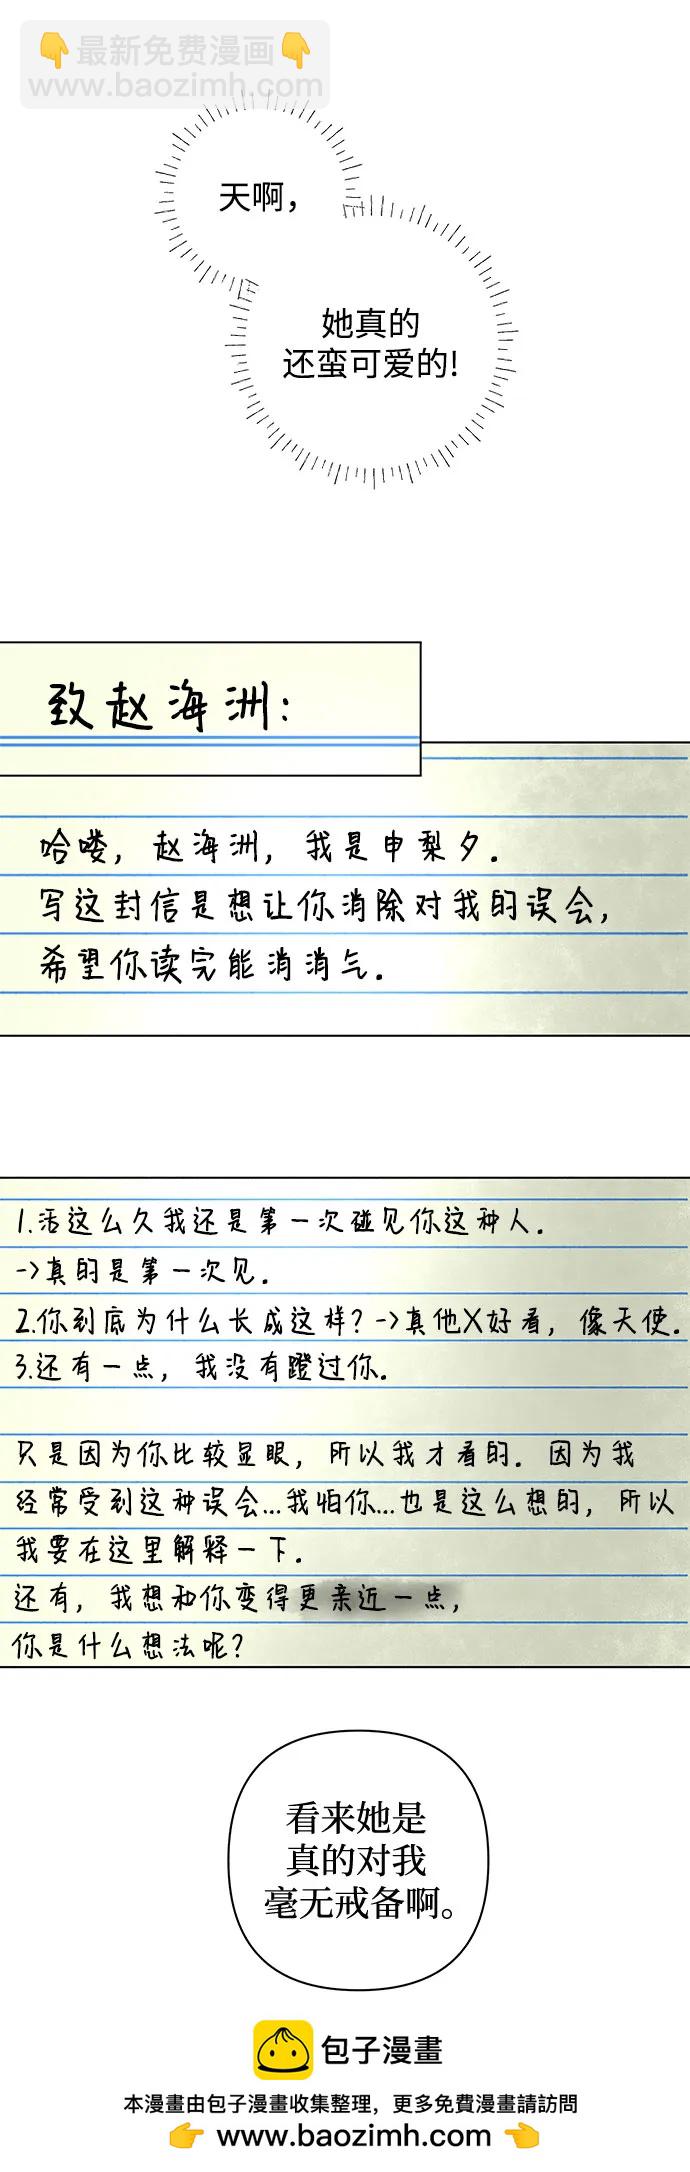 👇最新免费漫画👇
www.baozimh.com
天啊，
她真的
还蛮可爱的!
致赵海洲:
哈喽，赵海洲，我是申梨夕.
写这封信是想让你消除对我的误会，
希望你读完能消消气.
1.活这么久我还是第一次碰见你这种人.
->真的是第一次见.
2.你到底为什么长成这样?->真他X好看，像天使.
3.还有一点，我没有蹬过你.
只是因为你比较显眼，所以我才看的.因为我
经常受到这种误会...我怕你...也是这么想的，所以
我要在这里解释一下.
还有，我想和你变得更亲近一点，
你是什么想法呢?
看来她是
真的对我
毫无戒备啊。
包子漫畫
本漫畫由包子漫畫收集整理，更多免費漫畫請訪問
👉 www.baozimh.com 👈